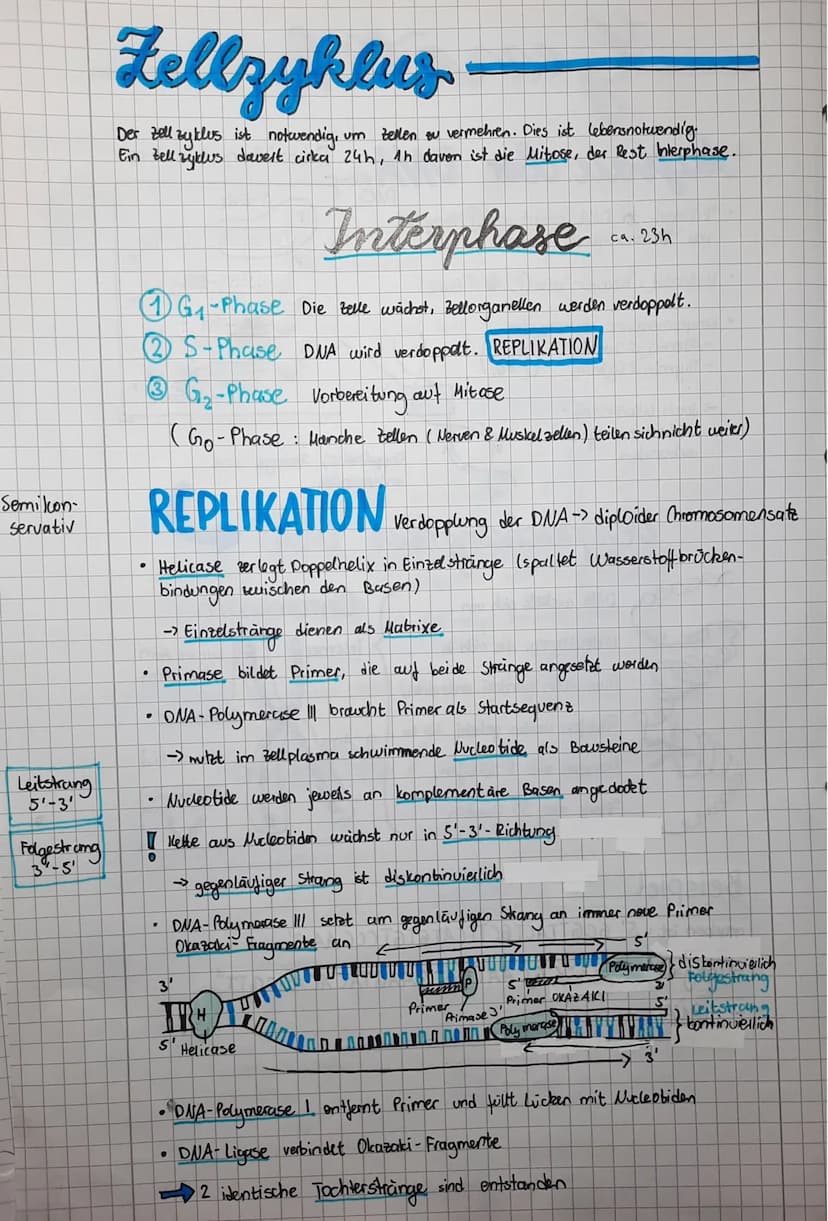 Zellzyklus
Der Zellzyklus ist notwendig, um Zellen zu vermehren. Dies ist lebensnotwendig.
Ein Zellzyklus dauert cirka 24h, 1h davon ist die Mitose, der Rest Interphase.
Interphase ca. 23h
① G₁-Phase Die Zelle wächst, Zellorganellen werden verdoppelt.
② S-Phase DNA wird verdoppelt. REPLIKATION
③ G₂-Phase Vorbereitung auf Mitose
(G₀-Phase: Manche Zellen (Nerven & Muskelzellen) teilen sich nicht weiter)
Semikon-
servativ
REPLIKATION Verdopplung der DNA -> diploider Chromosomensatz
• Helicase zerlegt Doppelhelix in Einzelstränge (spaltet Wasserstoffbrücken-
bindungen zwischen den Basen)
-> Einzelstränge dienen als Matrixe
• Primase bildet Primer, die auf beide Stränge angesetzt werden
• DNA-Polymerase III braucht Primer als Startsequenz
-> nutzt im Zellplasma schwimmende Nucleotide als Bausteine
Leitstrang
5'-3'
• Nucleotide werden jeweils an komplementäre Basen angedockt
Folgestrang
3'-5'
! Kette aus Nucleotiden wächst nur in 5'-3'-Richtung
-> gegenläufiger Strang ist diskontinuierlich
• DNA-Polymerase III setzt am gegenläufigen Strang an immer neue Primer
Okazaki-Fragmente an
5'
3'
Polymerase
diskontinuierlich
Folgestrang
P
5'
3'
Primer
Primase
3'
Primer OKAZAKI
5'
Leitstrang
kontinuierlich
H
Polymerase
5'
Helicase
3'
• DNA-Polymerase I entfernt Primer und füllt Lücken mit Nucleotiden
• DNA-Ligase verbindet Okazaki-Fragmente
-> 2 identische Tochterstränge sind entstanden